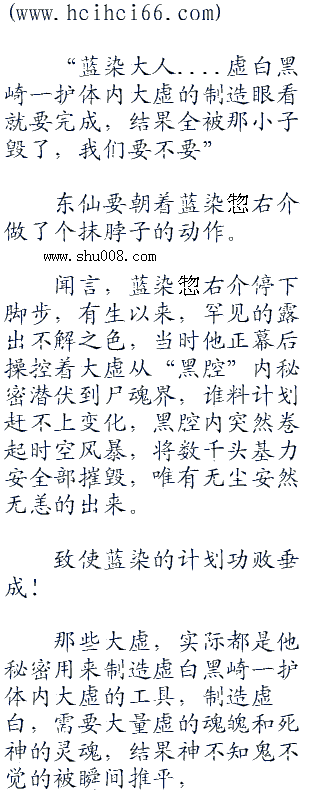 (www.hcihci66.com)
“蓝染大人....虚白黑
崎一护体内大虚的制造眼看
就要完成，结果全被那小子
毁了，我们要不要”
东仙要朝着蓝染惣右介
做了个抹脖子的动作。
www.shu008.com
闻言，蓝染惣右介停下
脚步，有生以来，罕见的露
出不解之色，当时他正幕后
操控着大虚从“黑腔”内秘
密潜伏到尸魂界，谁料计划
赶不上变化，黑腔内突然卷
起时空风暴，将数千头基力
安全部摧毁，唯有无尘安然
无恙的出来。
致使蓝染的计划功败垂
成！
那些大虚，实际都是他
秘密用来制造虚白黑崎一护
体内大虚的工具，制造虚
白，需要大量虚的魂魄和死
神的灵魂，结果神不知鬼不
觉的被瞬间推平，